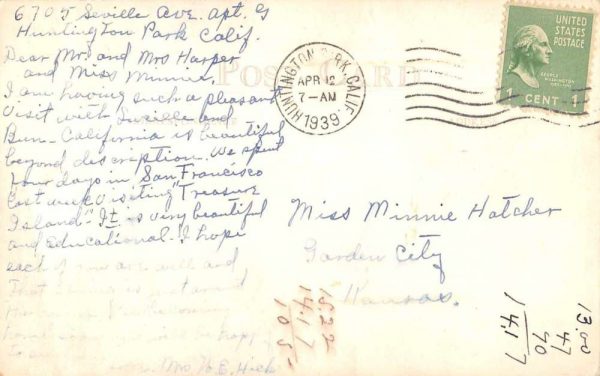 6705 Seville Ave. Apt. G
Huntington Park Calif.
Dear Mr. and Mrs Harper
and Miss Minnie.
I am having such a pleasant
visit with Lucille and
Ben - California is beautiful
beyond description. We spent
four days in San Francisco
last week visiting "Treasure
Island". It is very beautiful
and educational. I hope
each of you are well and
That
home
Mrs. H. E. Hick
POST CARD
HUNTINGTON PARK, CALIF.
APR 12
7-AM
1939
UNITED
STATES
POSTAGE
GEORGE
WASHINGTON
1 CENT 1
Miss Minnie Hatcher
Garden City
Kansas.
15.22
14.17
1 0 5
13.00
47
70
14.17